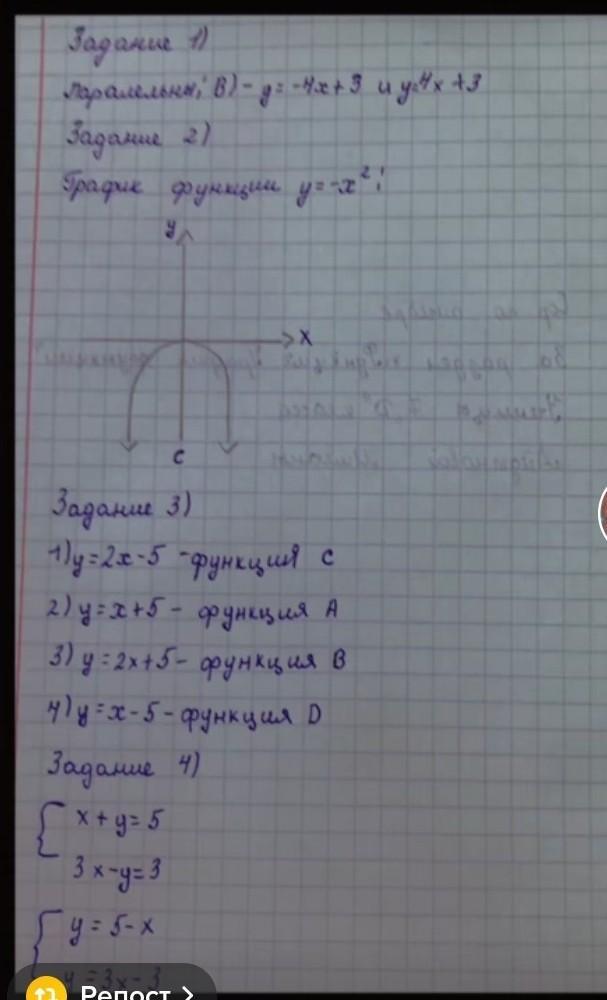 Задание 1)
Паралельны; В) - y = -4x+3 и y=4x+3
Задание 2)
График функции y=-x²;
y
x
C
Задание 3)
1) y=2x-5 - функция C
2) y=x+5 - функция A
3) y=2x+5 - функция B
4) y=x-5 - функция D
Задание 4)
x+y=5
3x-y=3
y = 5-x
y = 3x-3
Репост >